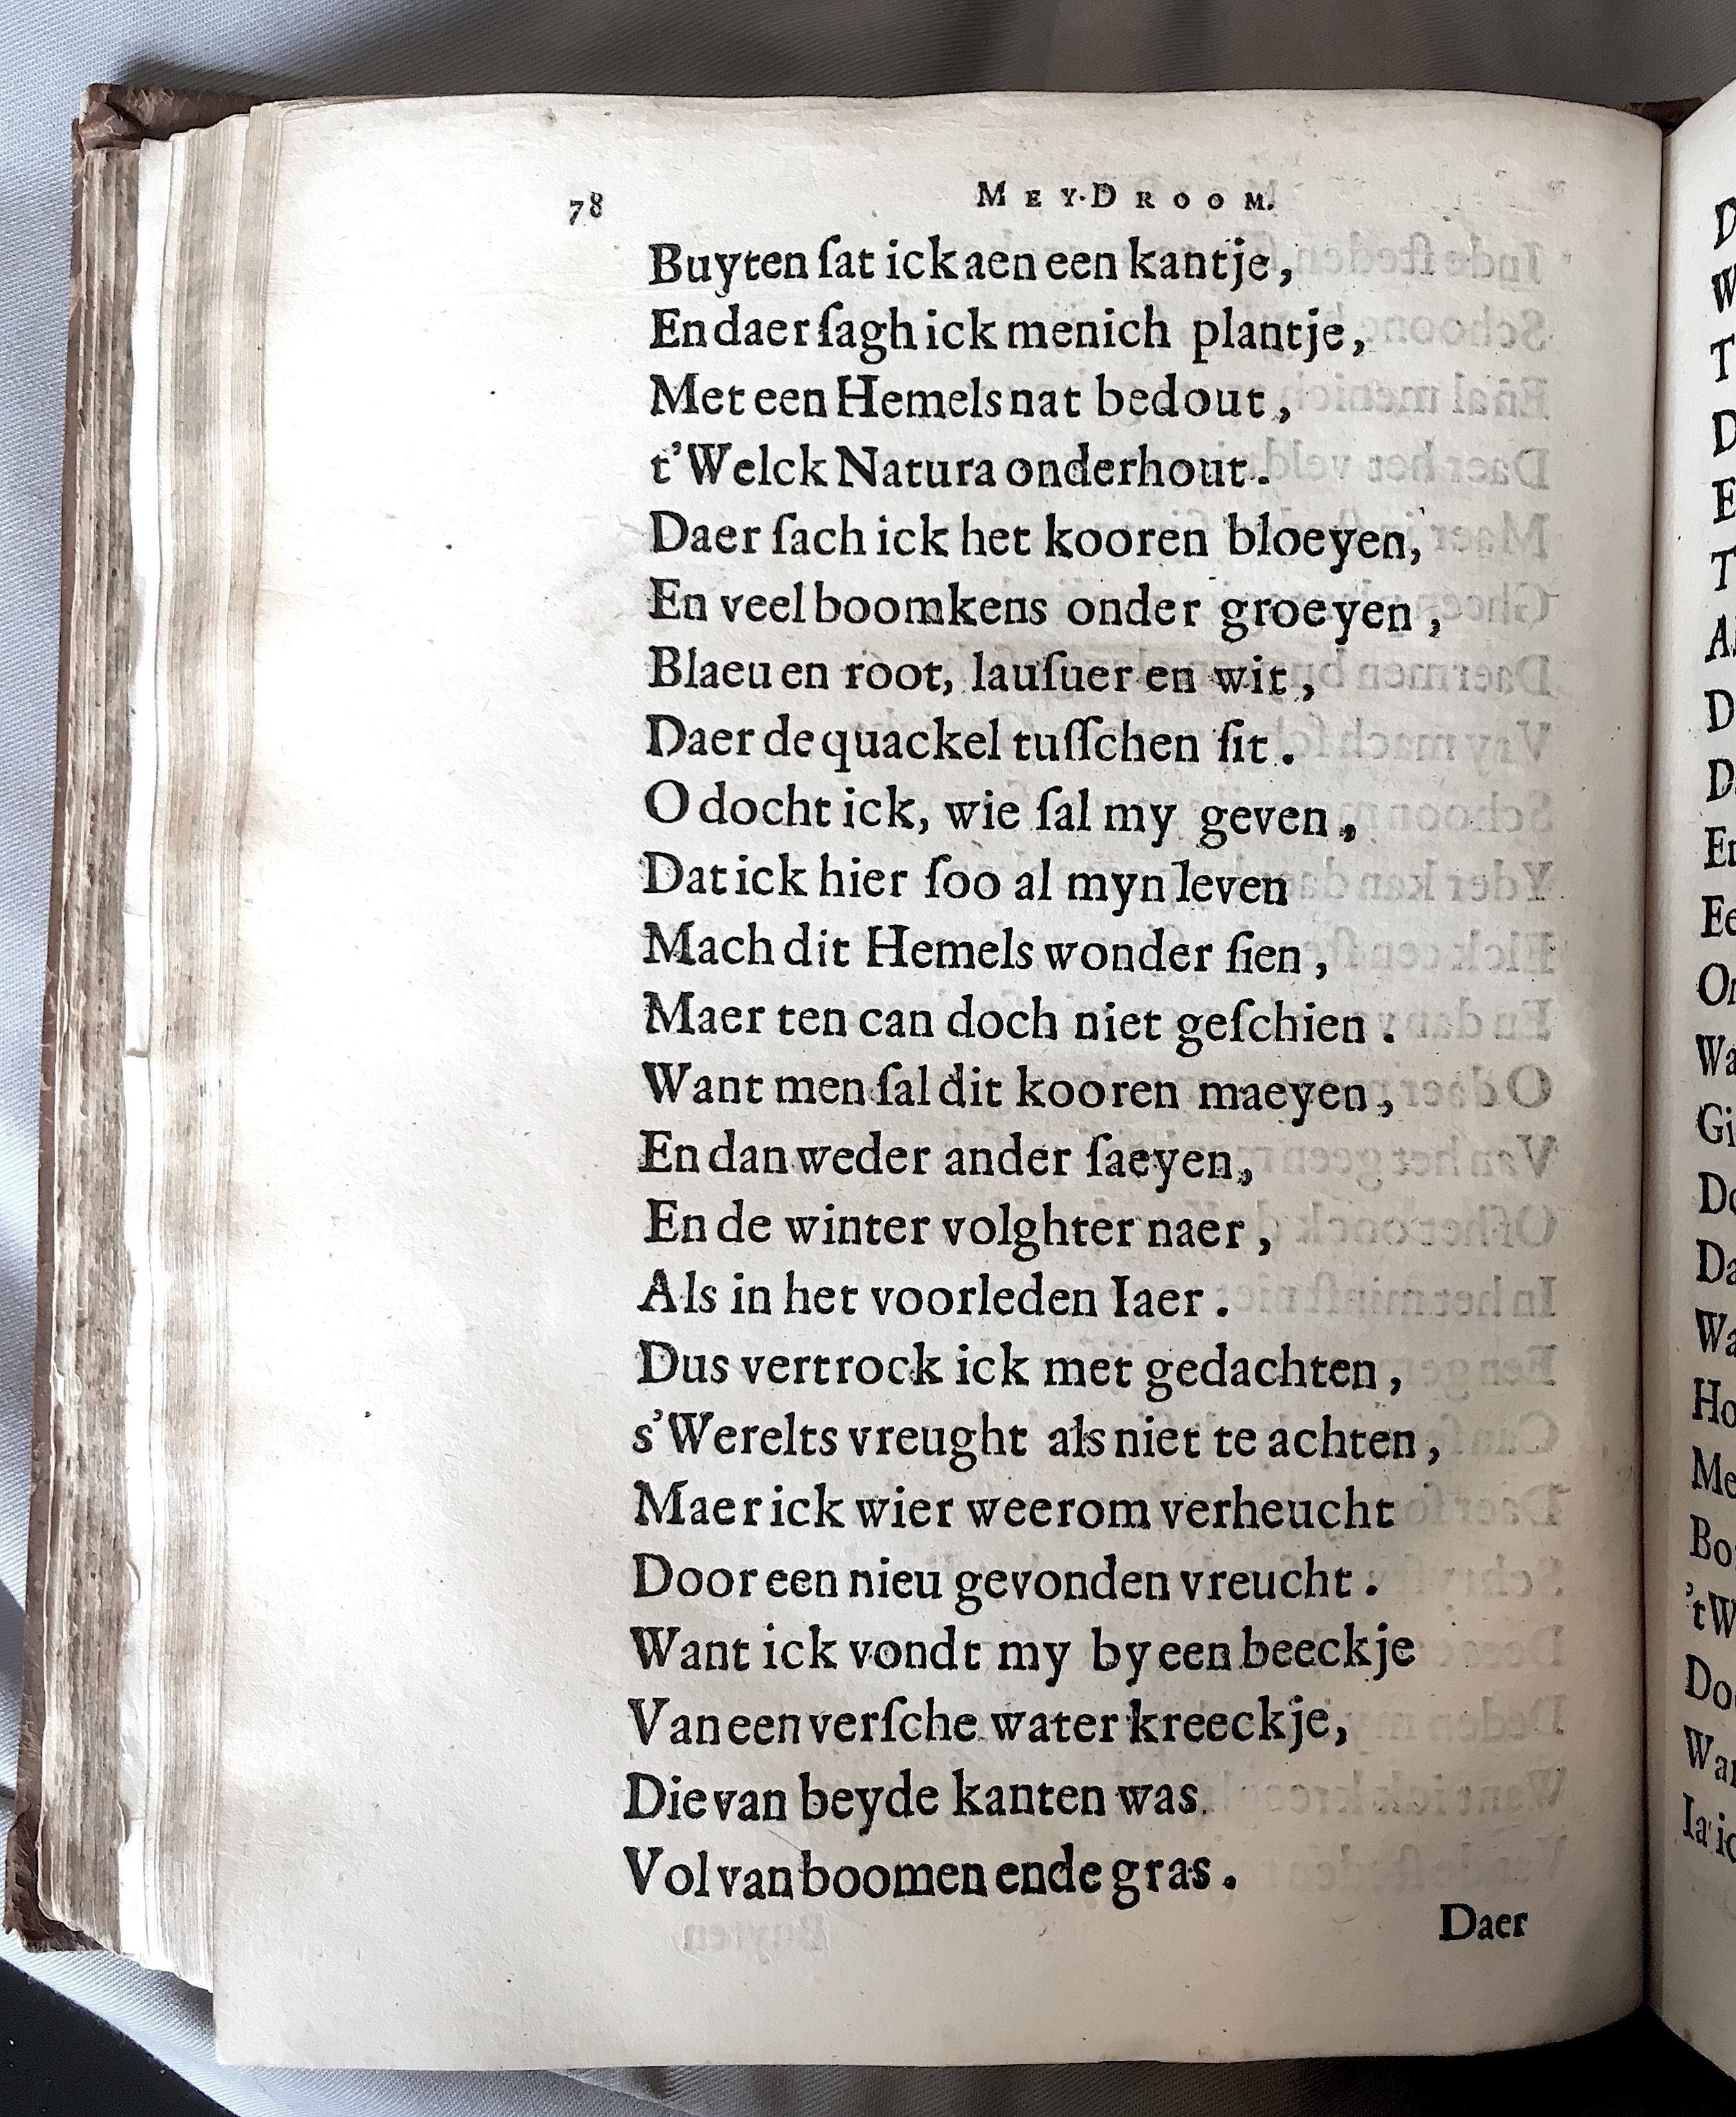 78 MEY-DROOM.
Buyten ſat ick aen een kantje,
En daer ſagh ick menich plantje,
Met een Hemels nat bedout,
t'Welck Natura onderhout.
Daer ſach ick het kooren bloeyen,
En veel boomkens onder groeyen,
Blaeu en root, lauſuer en wit,
Daer de quackel tuſſchen ſit.
O docht ick, wie ſal my geven,
Dat ick hier ſoo al myn leven
Mach dit Hemels wonder ſien,
Maer ten can doch niet geſchien.
Want men ſal dit kooren maeyen,
En dan weder ander ſaeyen,
En de winter volghter naer,
Als in het voorleden Iaer.
Dus vertrock ick met gedachten,
s'Werelts vreught als niet te achten,
Maer ick wier weerom verheucht
Door een nieu gevonden vreucht.
Want ick vondt my by een beeckje
Van een verſche water kreeckje,
Die van beyde kanten was
Vol van boomen ende gras.
Daer